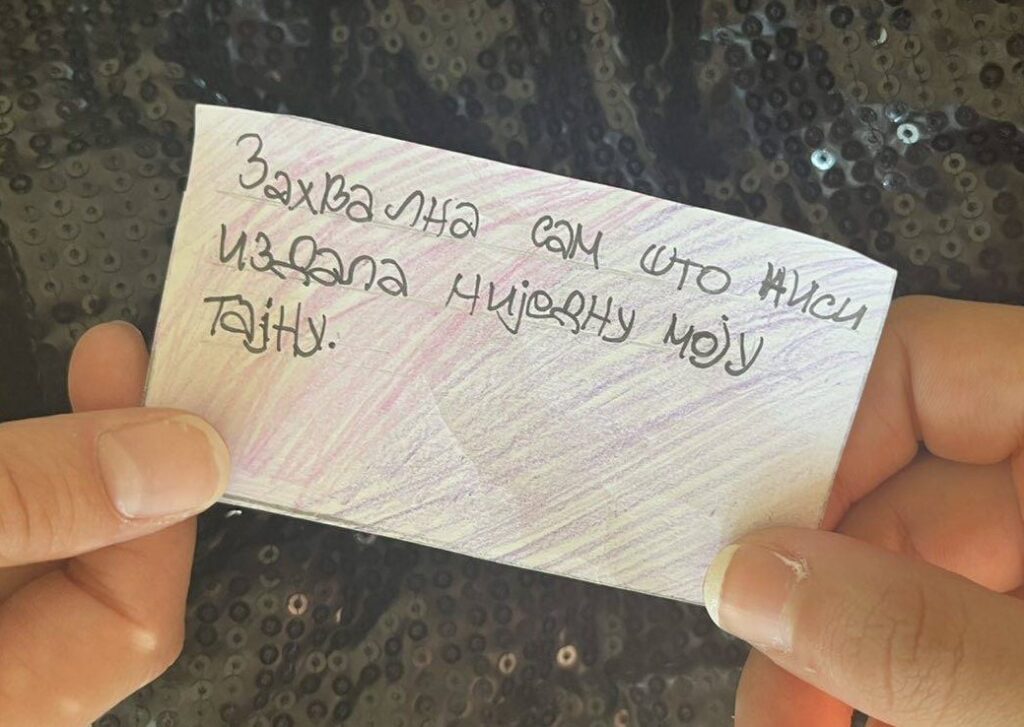 Захвална сам што ниси
издала ниједну моју
тајну.